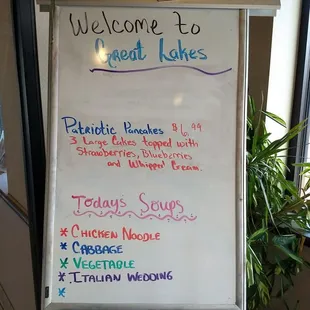 Welcome To
Great Lakes
Patriotic Pancakes $6.99
3 Large Cakes topped with
Strawberries, Blueberries
and Whipped Cream.
Todays Soups
* CHICKEN NOODLE
* CABBAGE
* VEGETABLE
* ITALIAN WEDDING
*